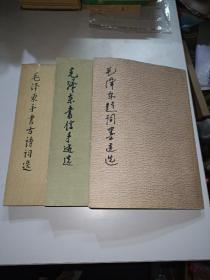 毛泽东手书古诗词选
毛泽东书信手迹选
毛泽东诗词墨迹选